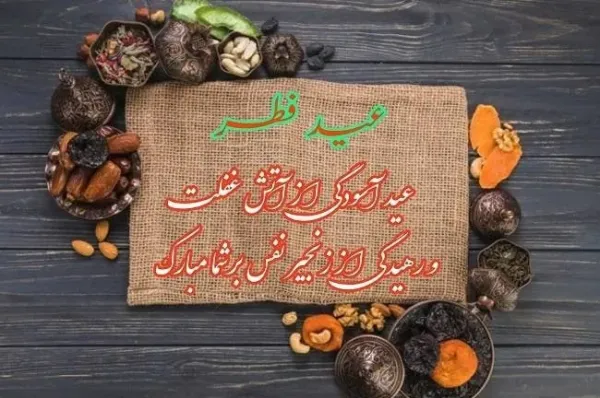 عید فطر
عید آسودگی از آتش غفلت
و رهیدگی از زنجیر نفس بر شما مبارک